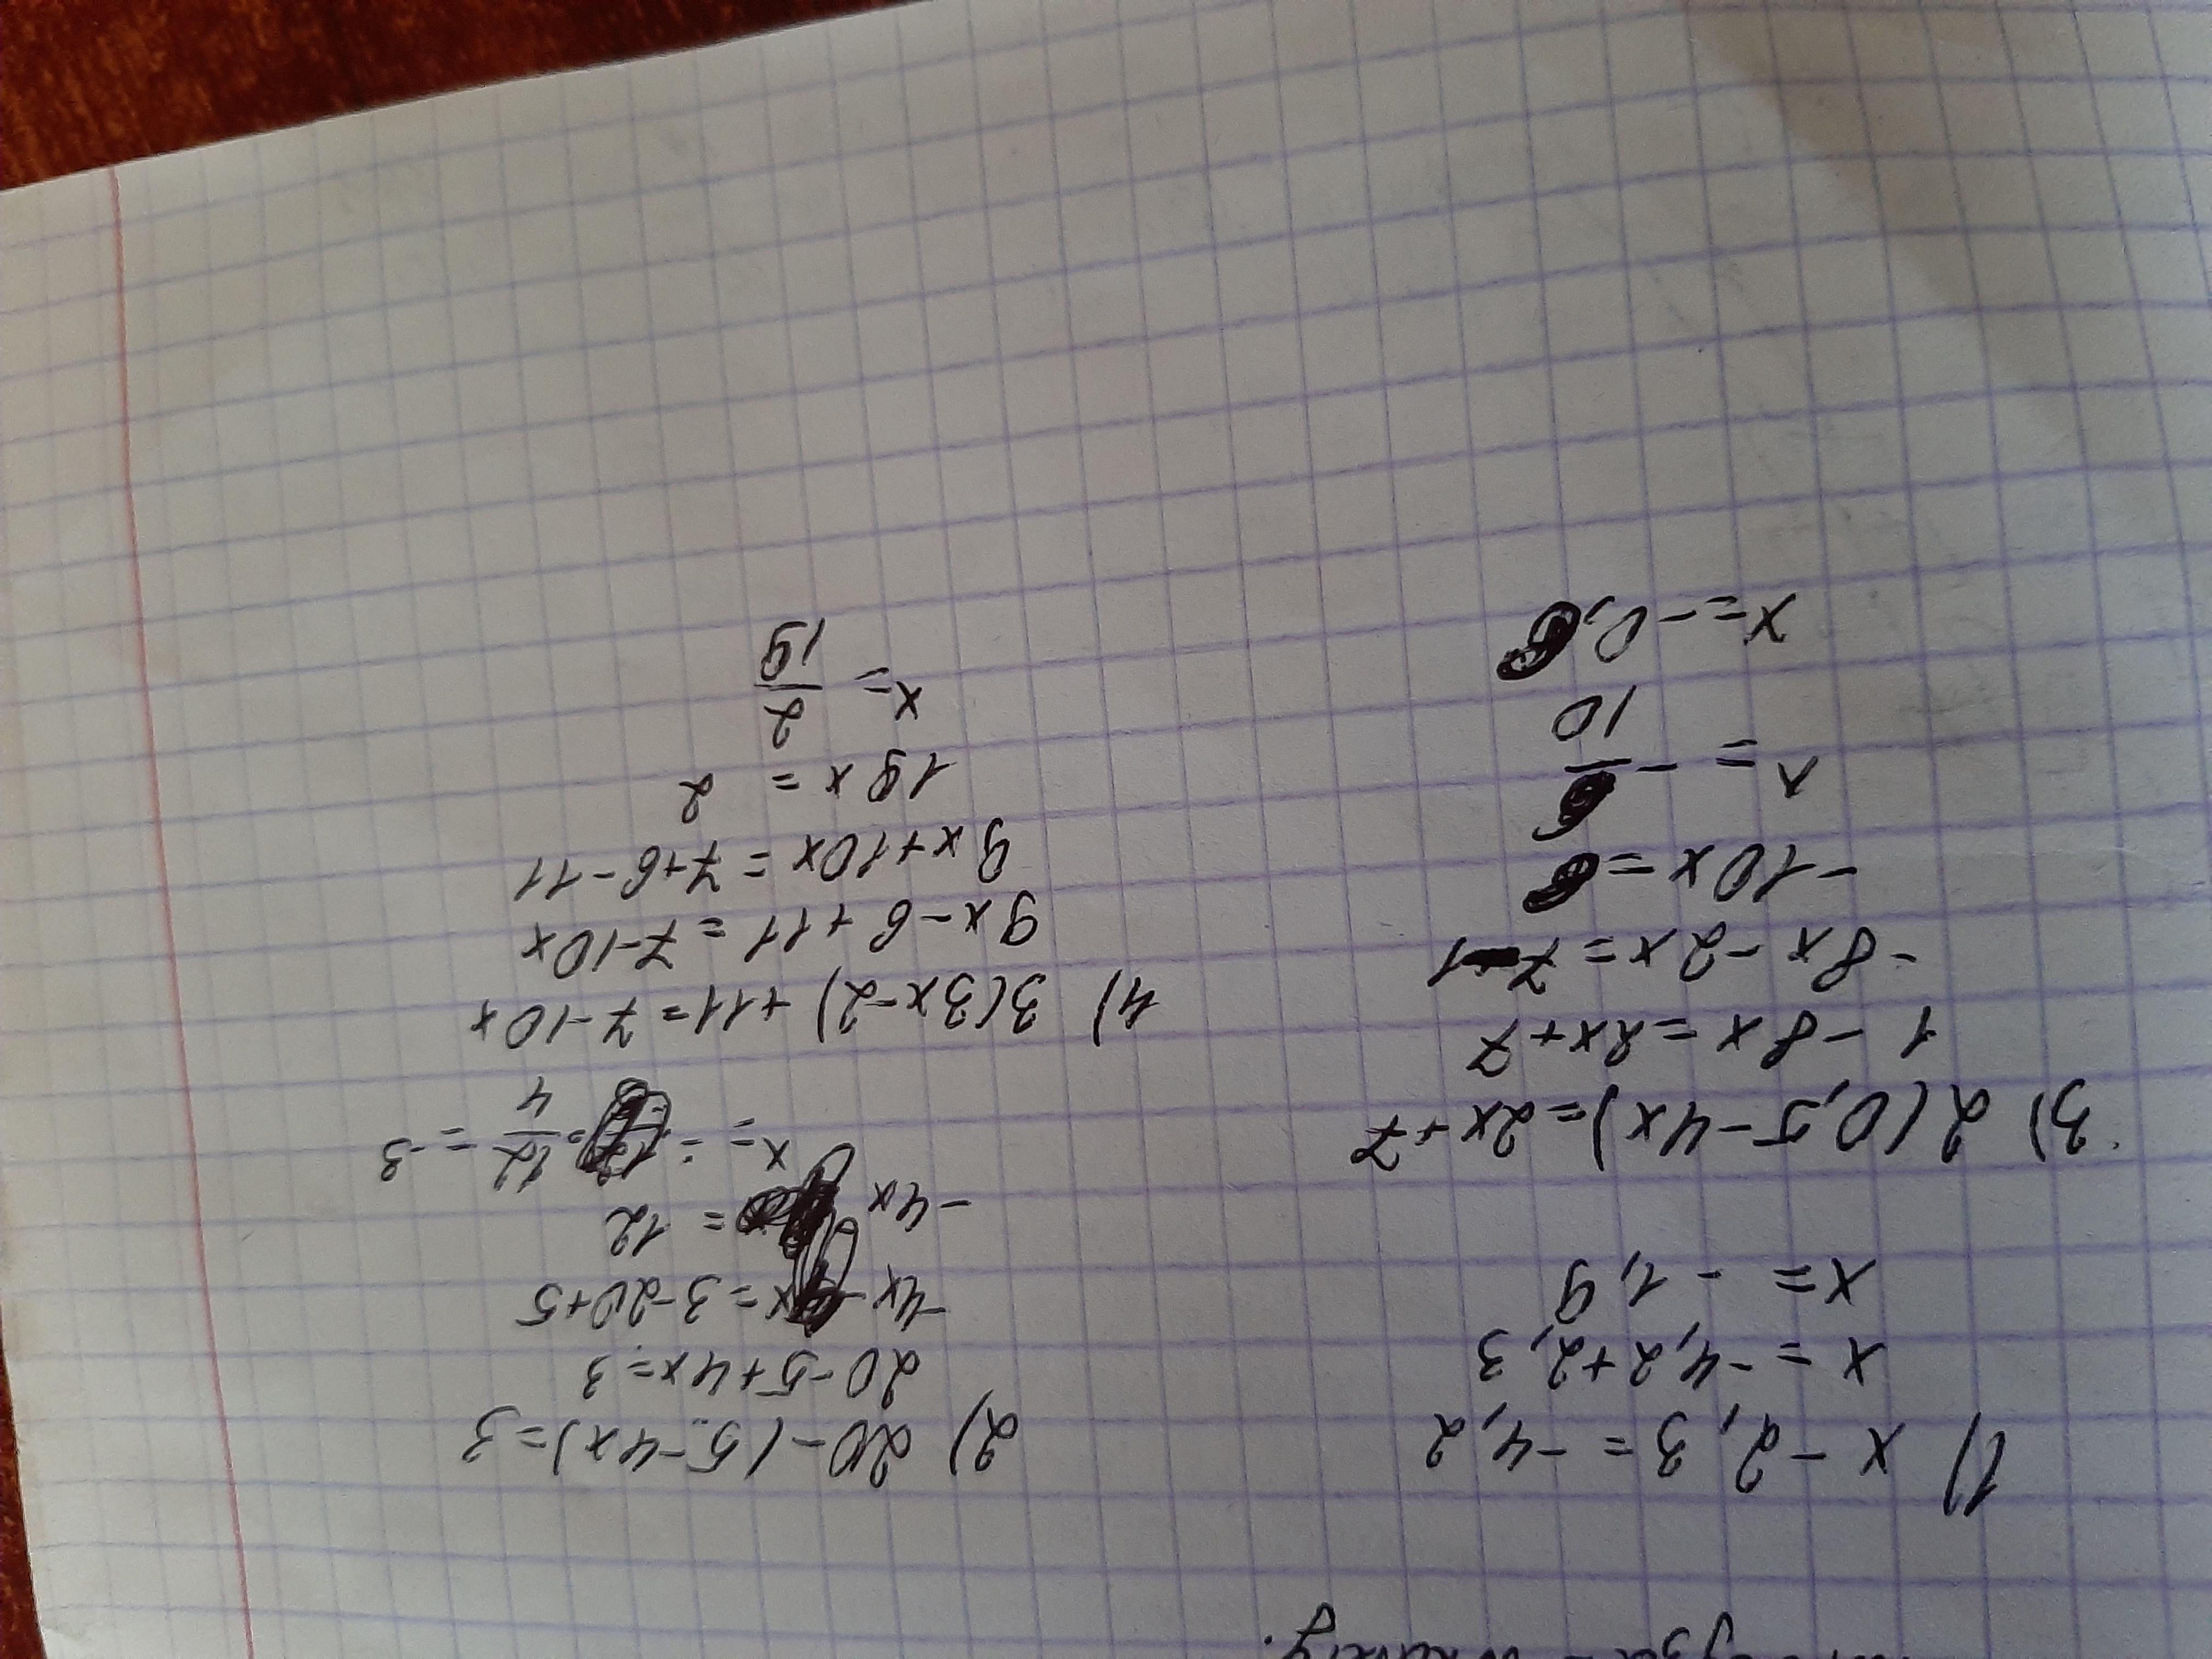 1) x - 2,3 = -4,2
x = -4,2+2,3
x = -1,9
2) 20-(5-4x)=3
20-5+4x=3
-4x = 3-20+5
-4x = 12
x = - = 12/4 = -3
3) 2(0,5-4x)=2x+7
1 - 8x = 2x+7
-8x-2x=7-1
-10x=6
x = - 6/10
x=-0,6
4) 3(3x-2)+11=7-10x
9x-6+11=7-10x
9x+10x=7+6-11
19x = 2
x= 2/19